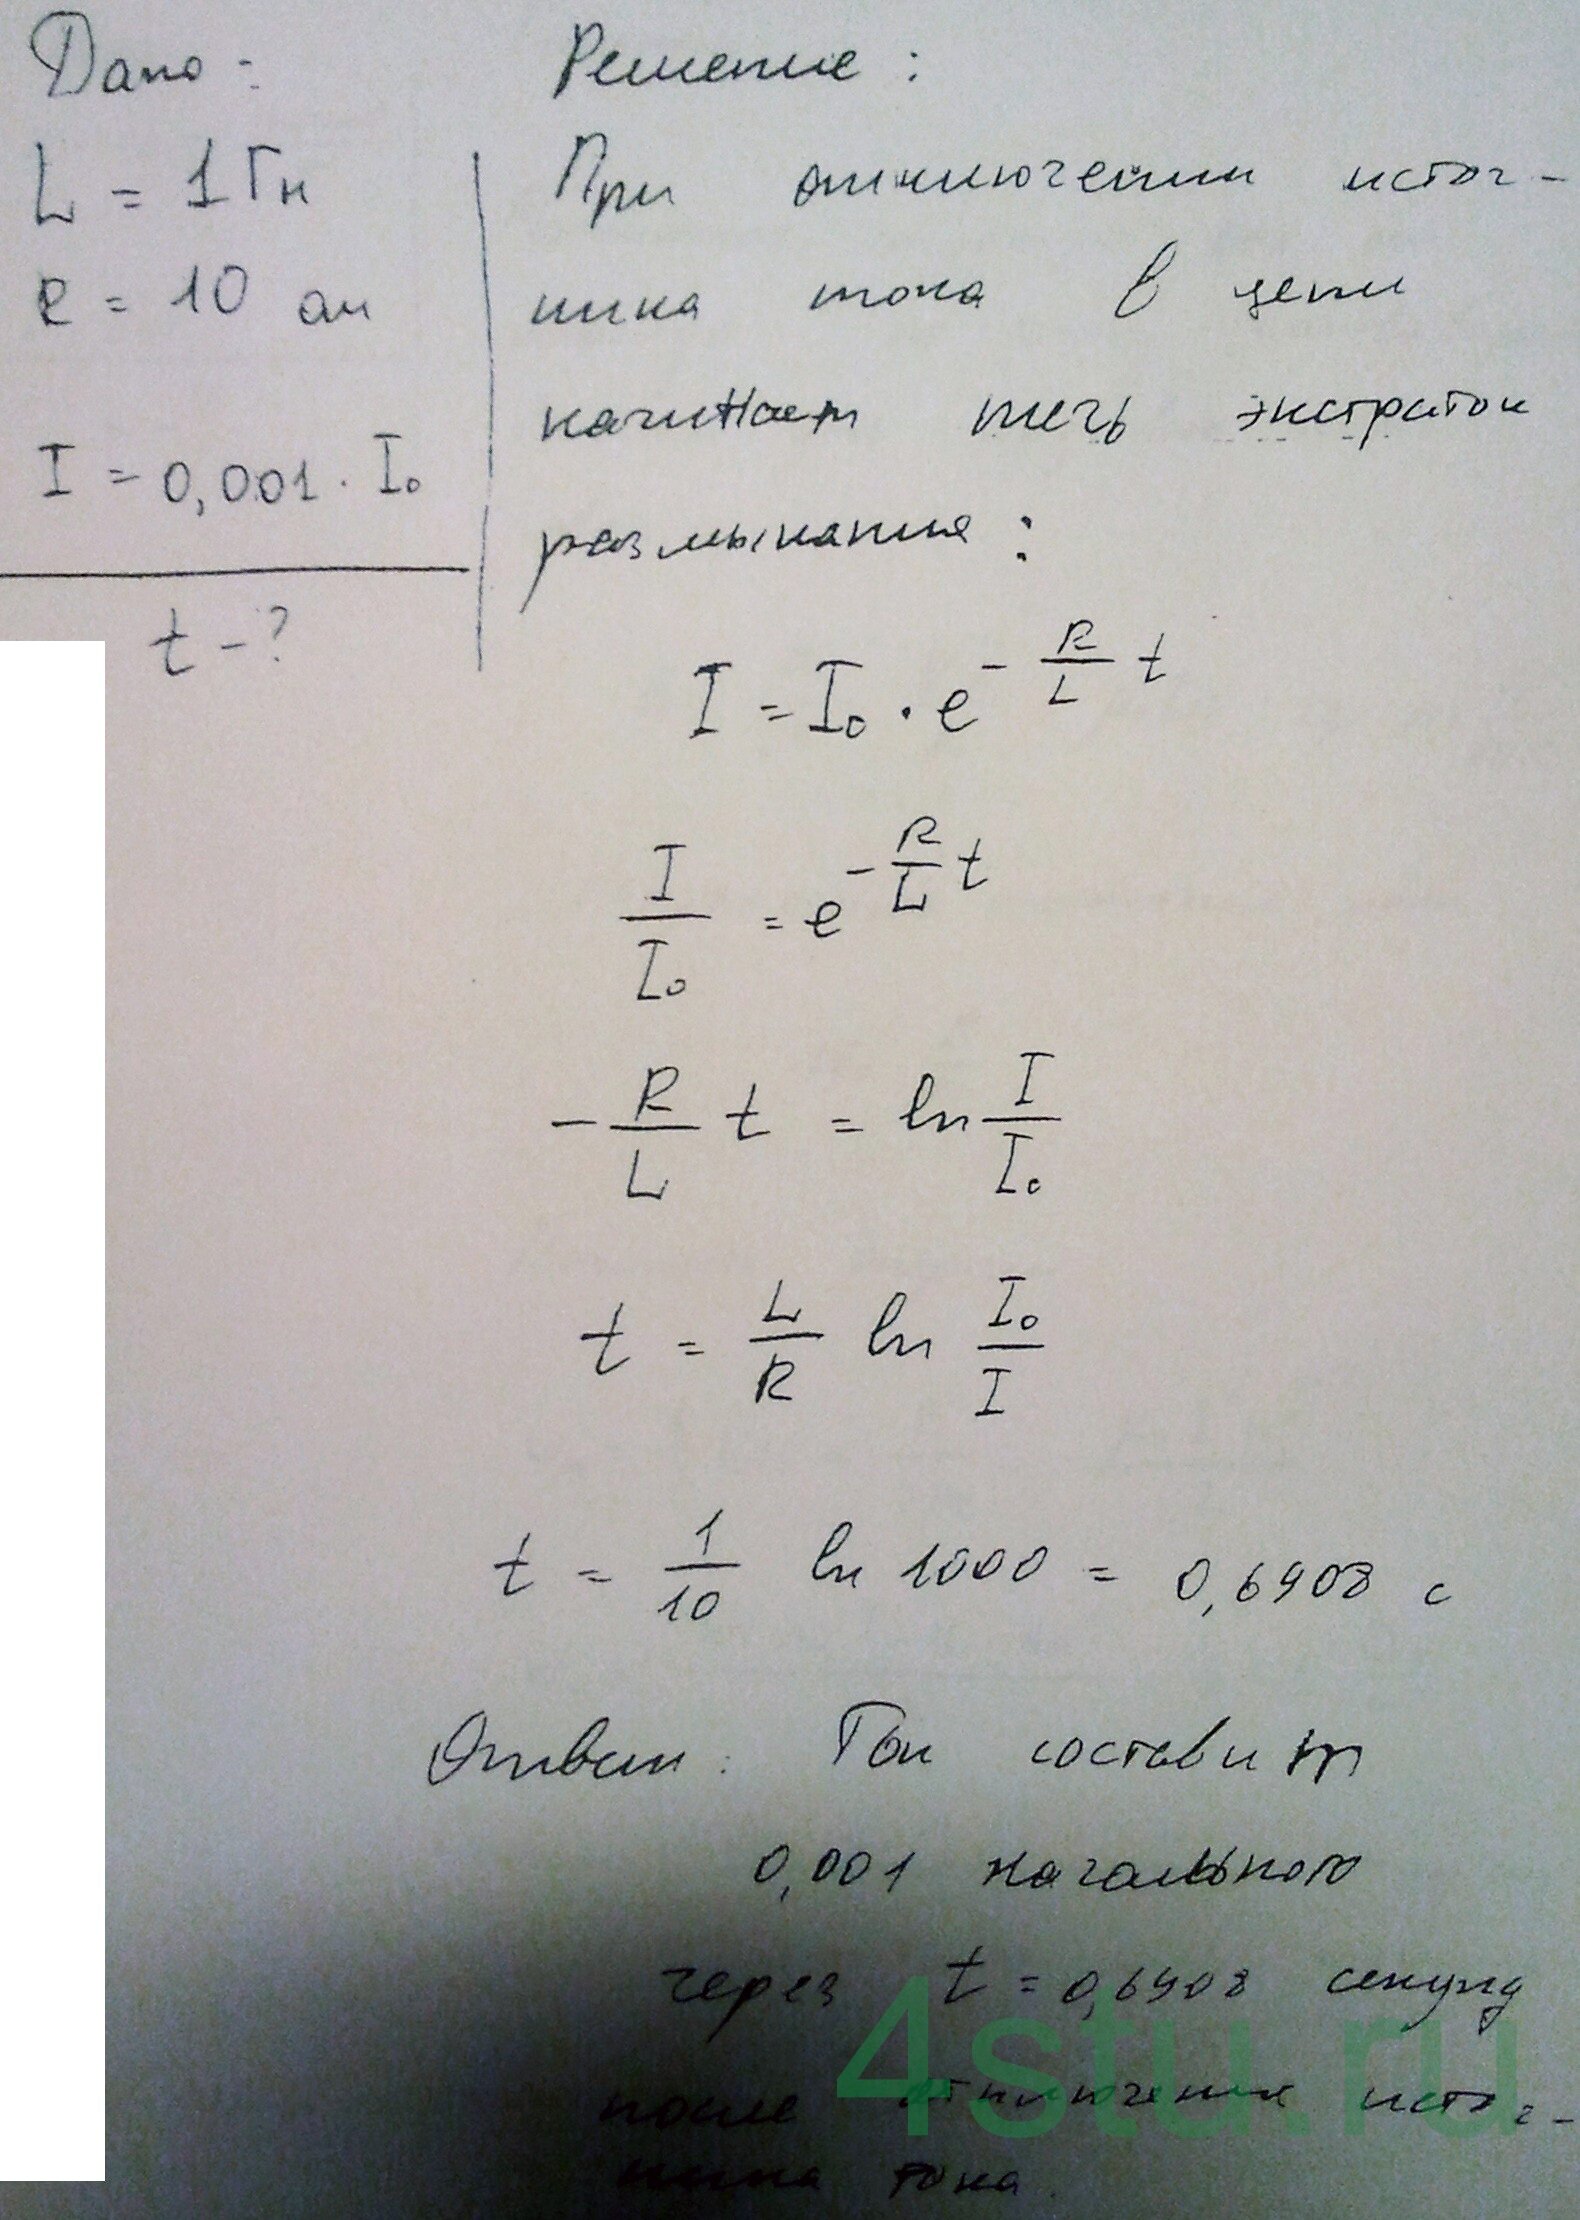 Дано:
L = 1 Гн
R = 10 ом
I = 0,001 · I₀
t - ?
Решение:
При отключении источ-
ника тока в цепи
начинает течь экстраток
размыкания:
I = I₀ · e^(-R/L t)
I/I₀ = e^(-R/L t)
-R/L t = ln I/I₀
t = L/R ln I₀/I
t = 1/10 ln 1000 = 0,6908 с
Ответ: Ток составит
0,001 начального
через t = 0,6908 секунд
после отключения источ-
ника тока.
4stu.ru